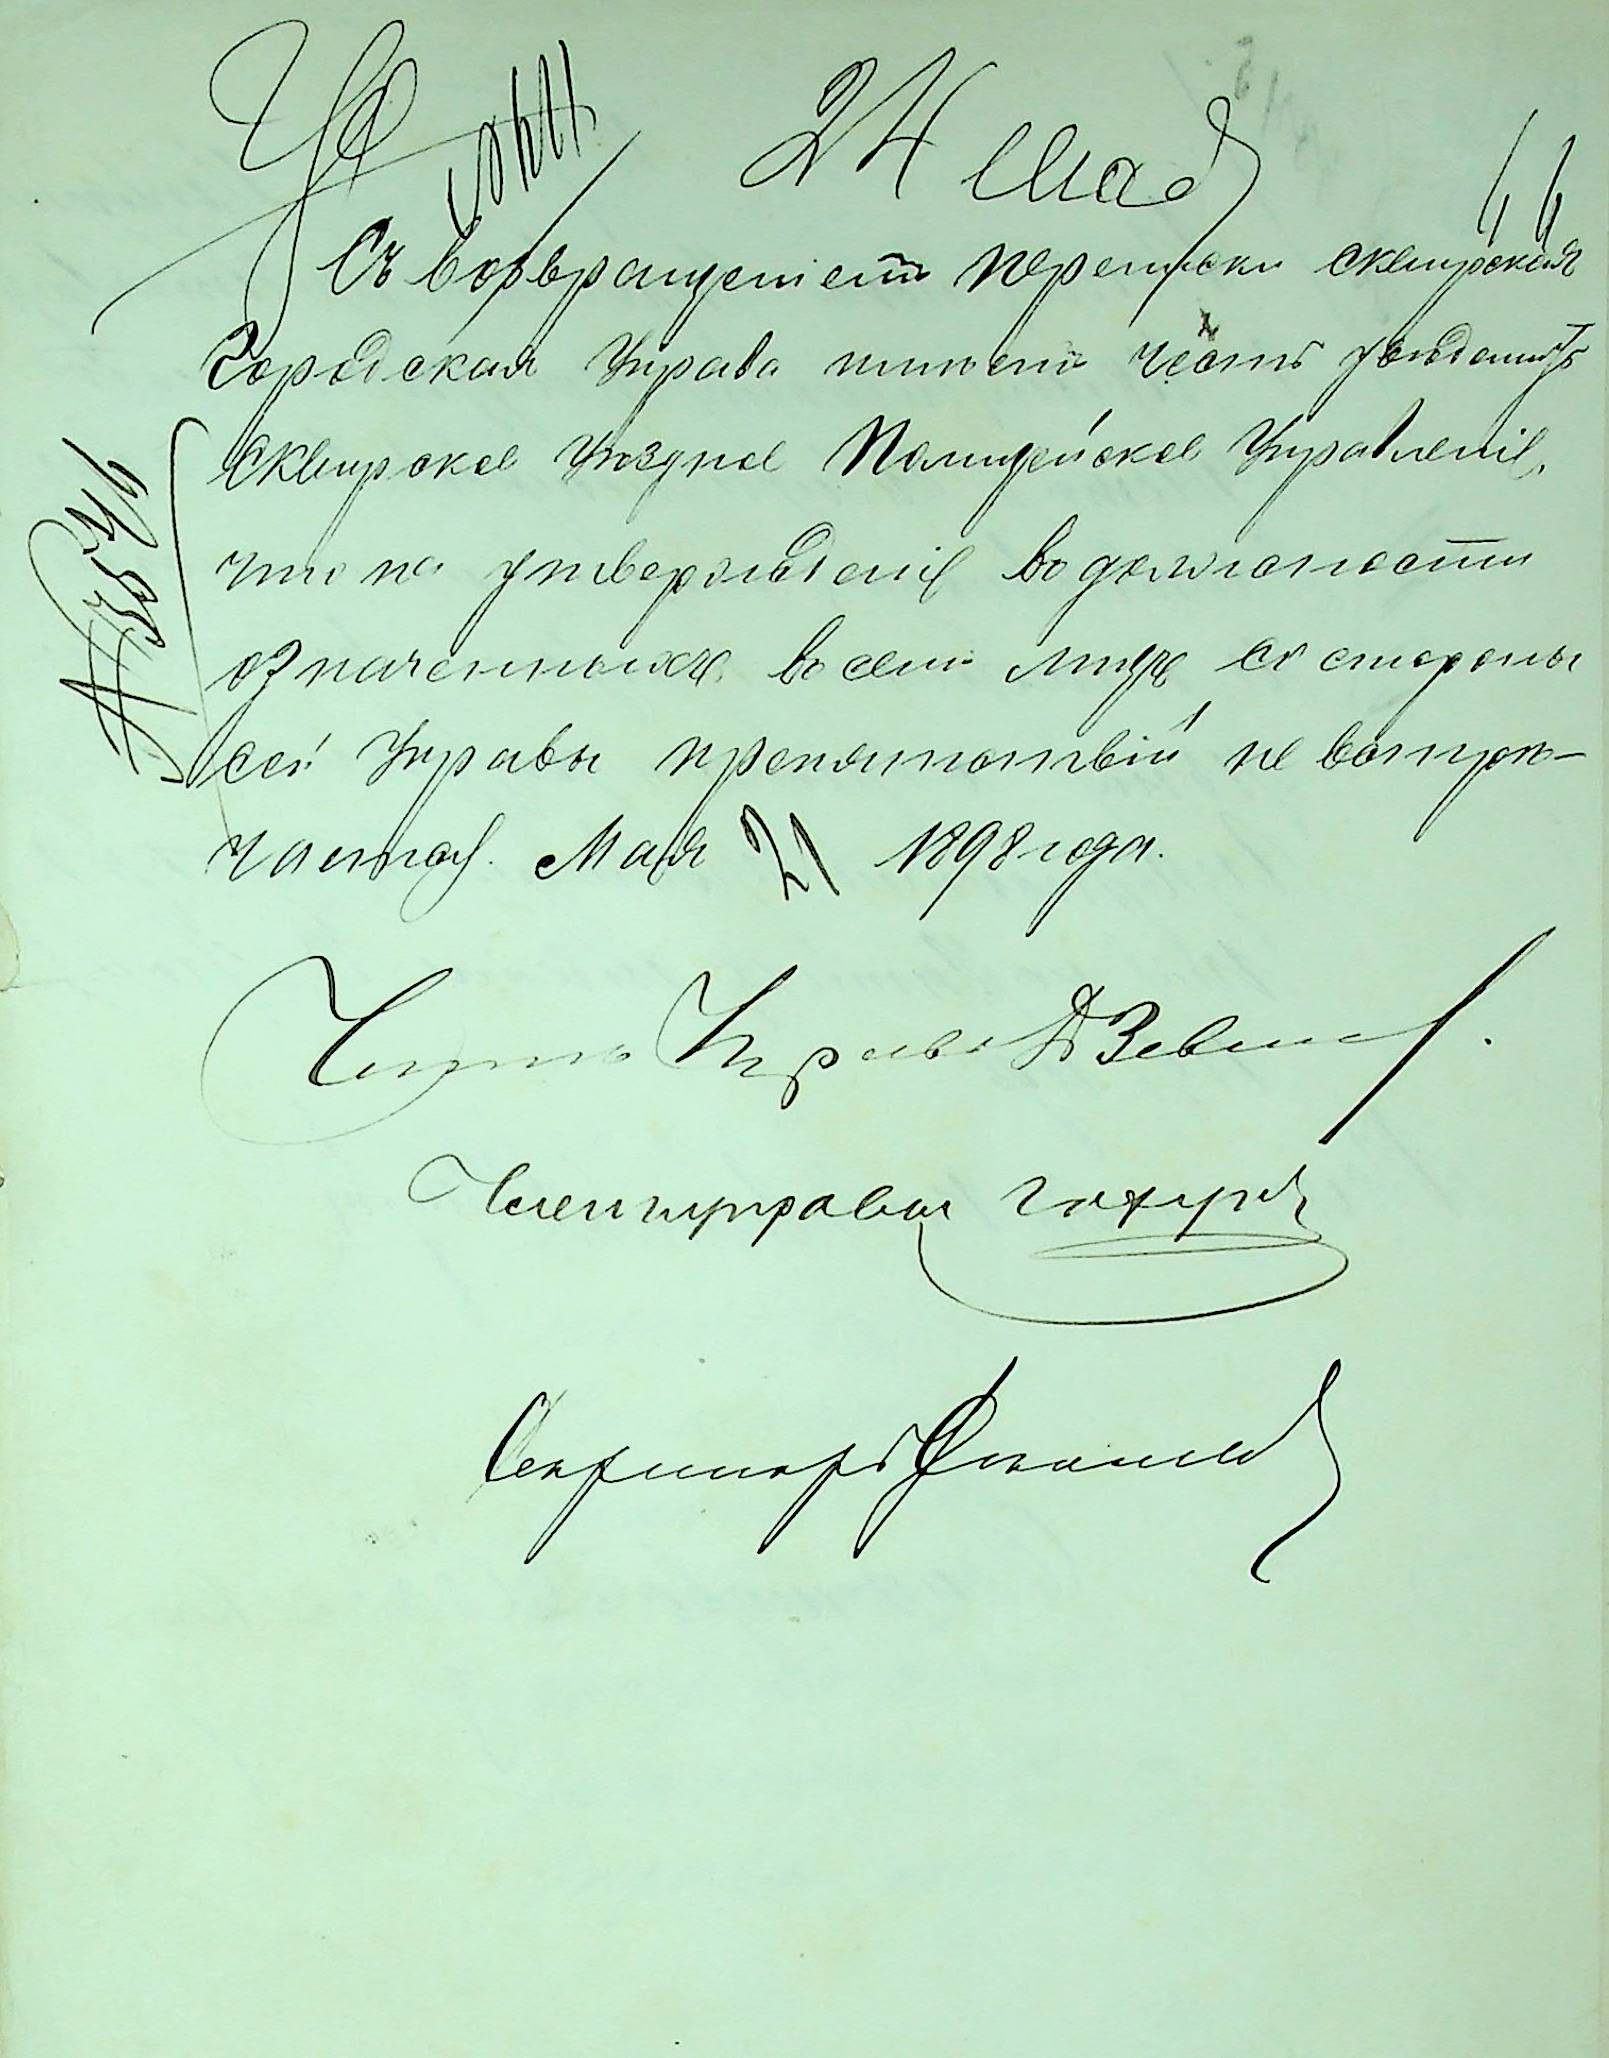 24 мая
Съ возвращеніемъ переписки Сквирская
Городская Управа имѣетъ честь увѣдомить
Сквирское Уѣздное Полицейское Управленіе,
что къ утвержденію въ должности
означенныхъ въ семъ лицъ со стороны
сей Управы препятствій не встрѣ-
чается. Мая 21 1898 года.
Членъ Управы
Членъ управы
Секретарь